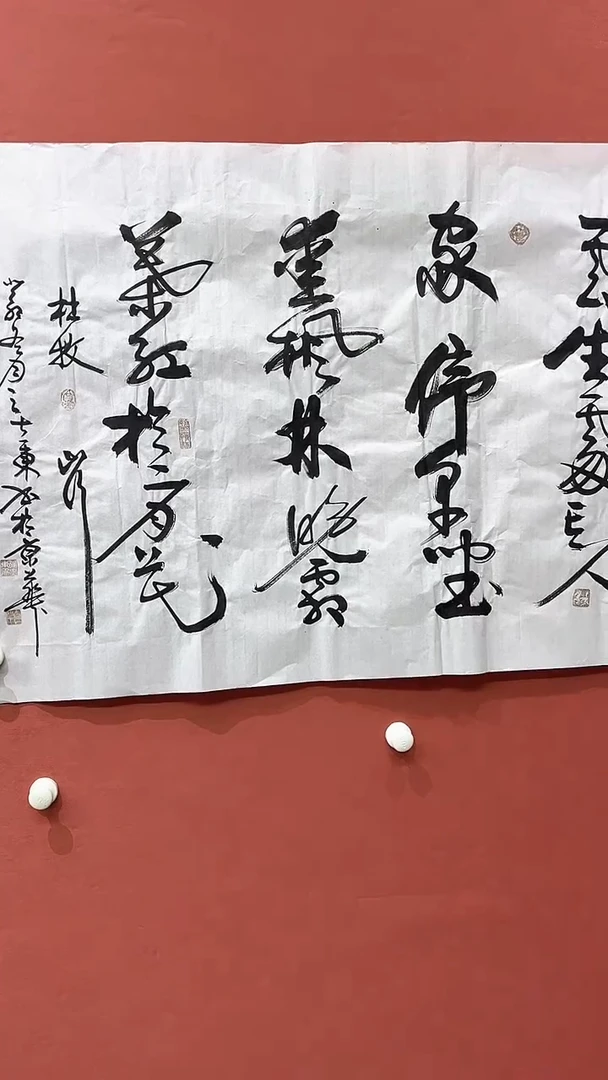 云生處有人
家停車坐
愛楓林晚霜
葉紅於二月花
杜牧 山行
於京華